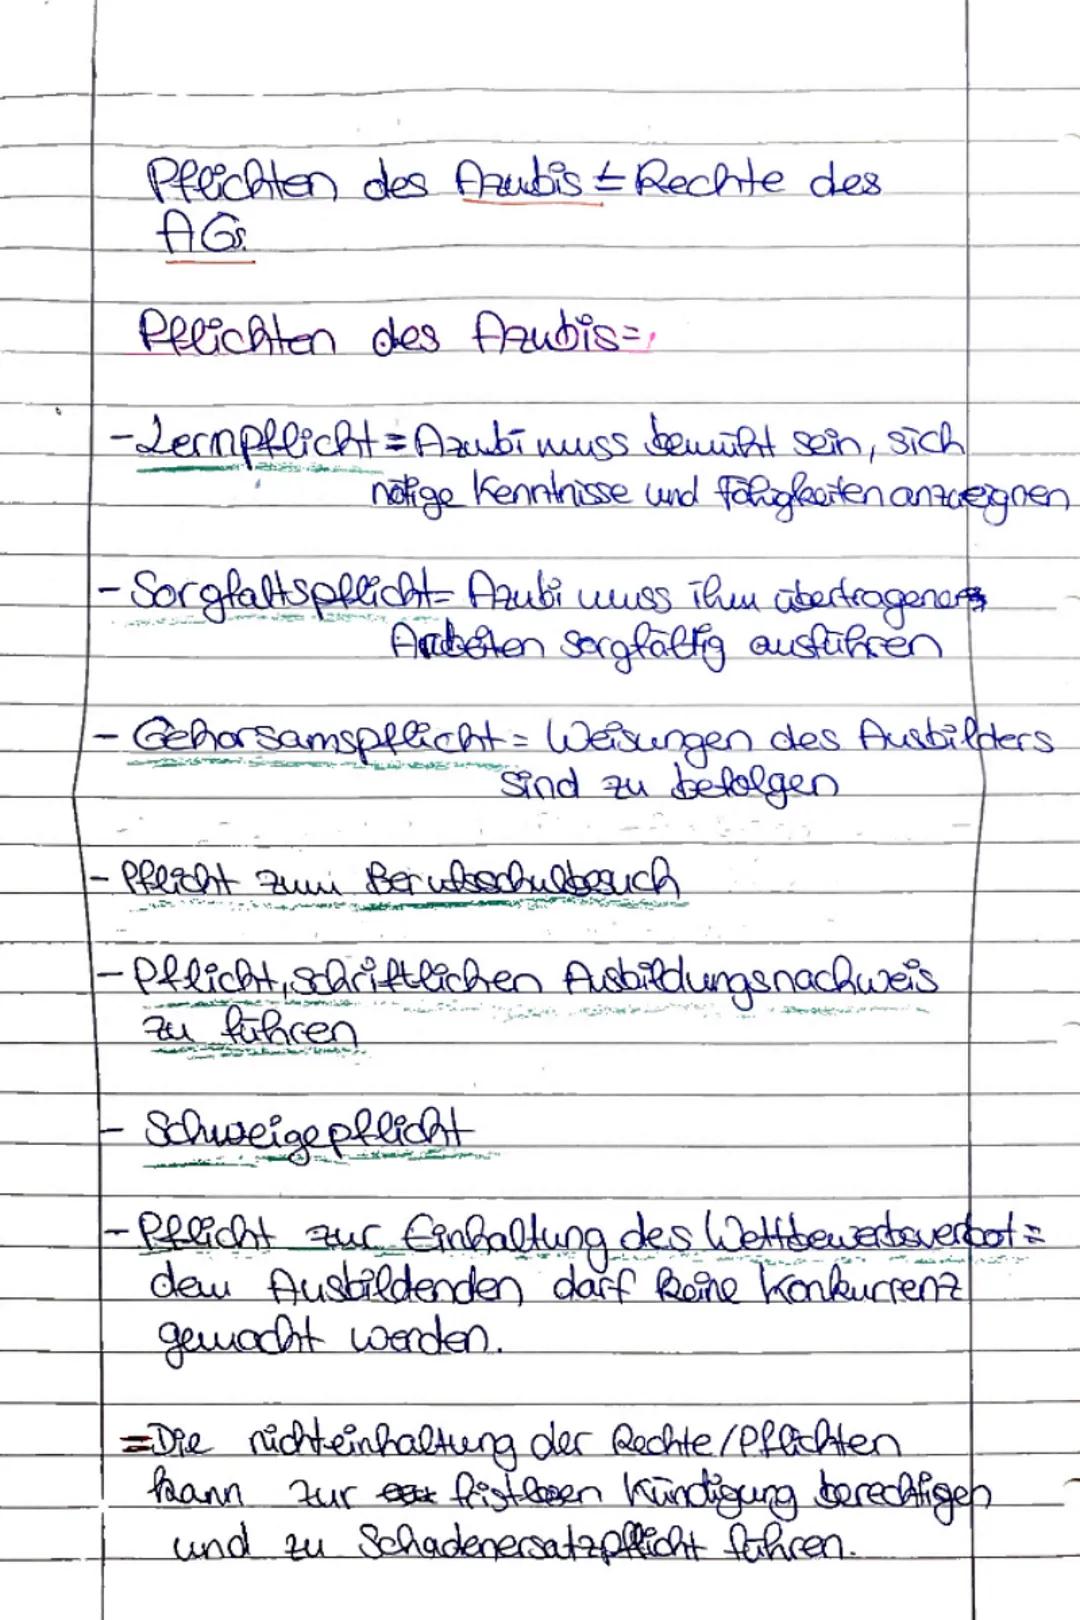 Pflichten des Azubis ≙ Rechte des
AGs.
Pflichten des Azubis=
-Lernpflicht = Azubi muss bemüht sein, sich
nötige Kenntnisse und Fähigkeiten anzueignen
- Sorgfaltspflicht= Azubi muss ihm übertragene
Arbeiten sorgfältig ausführen
- Gehorsamspflicht = Weisungen des Ausbilders
sind zu befolgen
- Pflicht zum Berufsschulbesuch
- Pflicht, schriftlichen Ausbildungsnachweis
zu führen
- Schweigepflicht
- Pflicht zur Einhaltung des Wettbewerbsverbot =
dem Ausbildenden darf keine Konkurrenz
gemacht werden.
=Die nichteinhaltung der Rechte/Pflichten
kann zur fristlosen Kündigung berechtigen
und zu Schadenersatzpflicht führen.